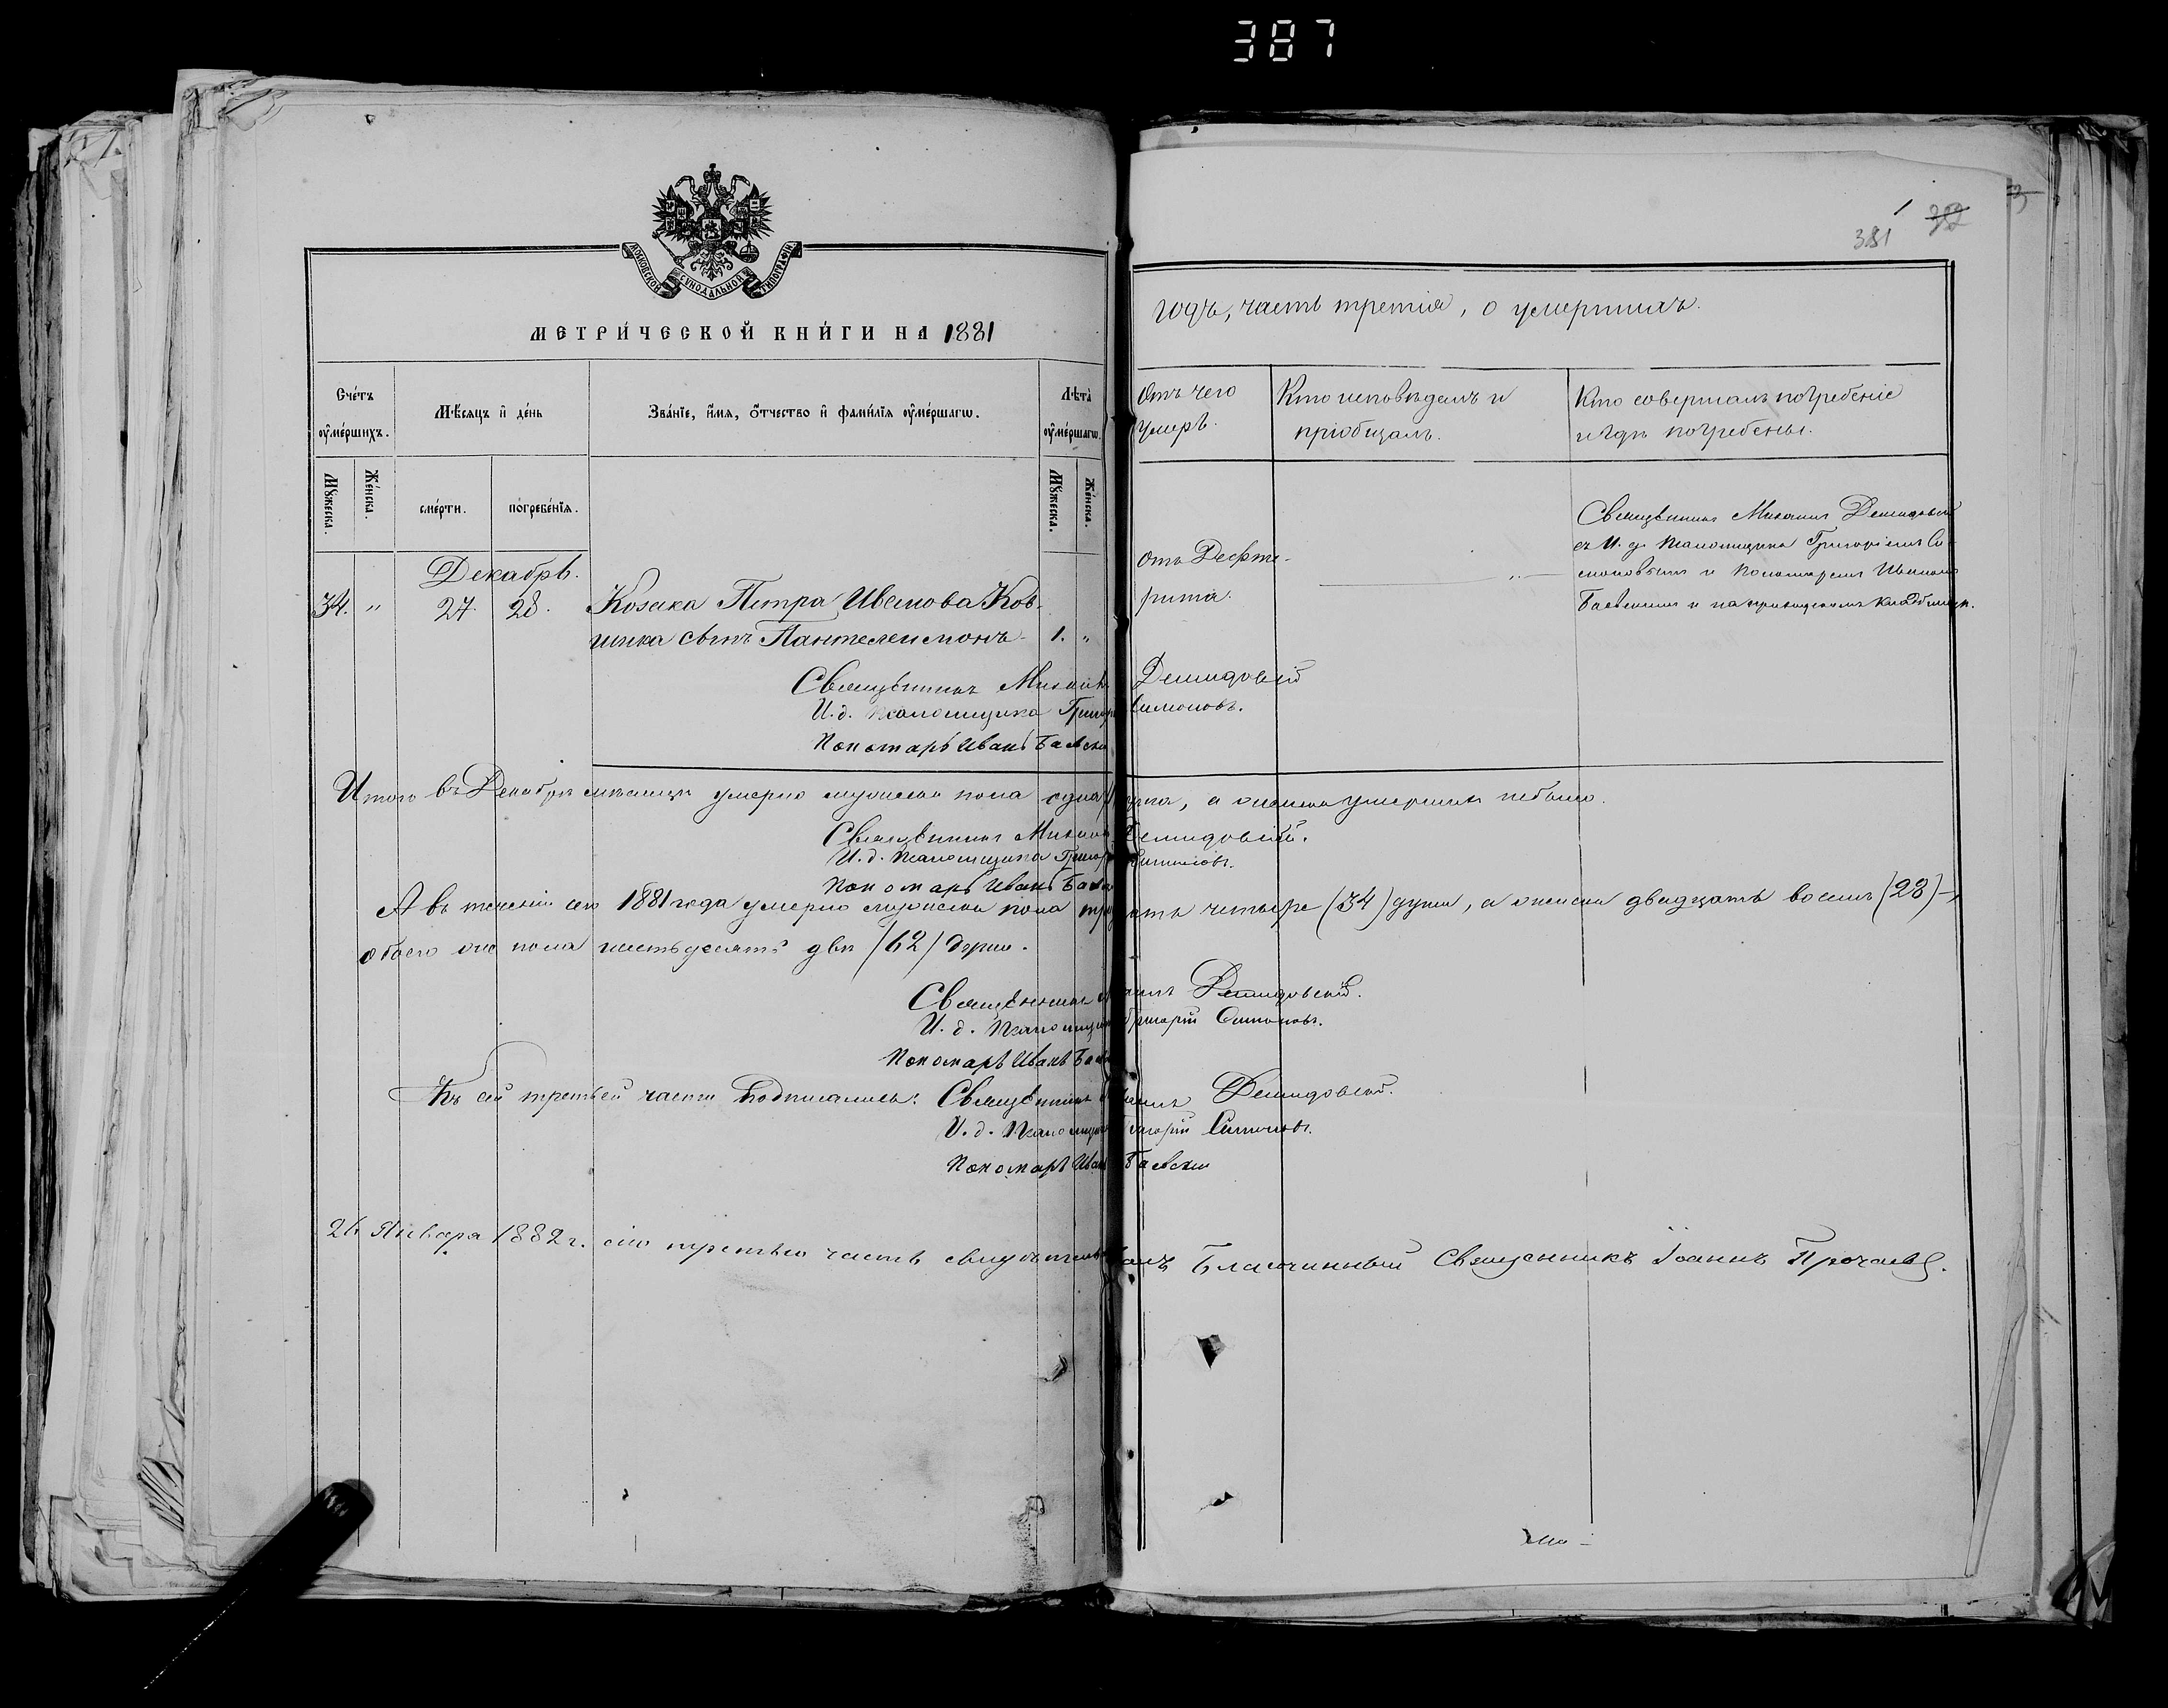 387
381 382
МОСКОВСКОЙ СѴНОДАЛЬНОЙ ТИПОГРАФІИ
МЕТРИ́ЧЕСКОЙ КНИ́ГИ НА 1881
годъ, часть третія, о умершихъ.
Сче́тъ оу҆ме́ршихъ.
Мѣ́сяцъ и҆ де́нь
Зва́нїе, и҆́мя, ѻ҆́тчество и҆ фами́лїя оу҆ме́ршагѡ.
Лѣ́та оу҆ме́ршагѡ.
Отъ чего умеръ.
Кто исповѣдалъ и пріобщалъ.
Кто совершалъ погребеніе и гдѣ погребены.
Мꙋ́жеска.
Же́нска.
сме́рти.
погребе́нїя.
Мꙋ́жеска.
Же́нска.
Декабрь.
34. " 27. 28. Козака Петра Иванова Ков-
шика сынъ Пантелеимонъ 1. "
отъ Дефте-
рита.
Священникъ Михаилъ Демидовскій
съ И. д. Псаломщика Григоріемъ Си-
моновымъ и Пономаремъ Иваномъ
Баевскимъ и на приходскомъ кладбищѣ.
Священникъ Михаилъ Демидовскій
И. д. Псаломщика Григорій Симоновъ.
Пономарь Иванъ Баевскій
Итого въ Декабрѣ мѣсяцѣ умерло мужеска пола одна душа, а женска умершихъ небыло.
Священникъ Михаилъ Демидовскій.
И. д. Псаломщика Григорій Симоновъ.
Пономарь Иванъ Баевскій
А въ теченіи сего 1881 года умерло мужеска пола тридцать четыре (34) души, а женска двадцать восемь (28) –,
обоего же пола шестьдесятъ двѣ (62) души.
Священникъ Михаилъ Демидовскій.
И. д. Псаломщика Григорій Симоновъ.
Пономарь Иванъ Баевскій
Къ сей третьей части подписались: Священникъ Михаилъ Демидовскій.
И. д. Псаломщика Григорій Симоновъ.
Пономарь Иванъ Баевскій
26 Января 1882 г. сію третью часть свидѣтельствовалъ Благочинный Священникъ Іоаннъ